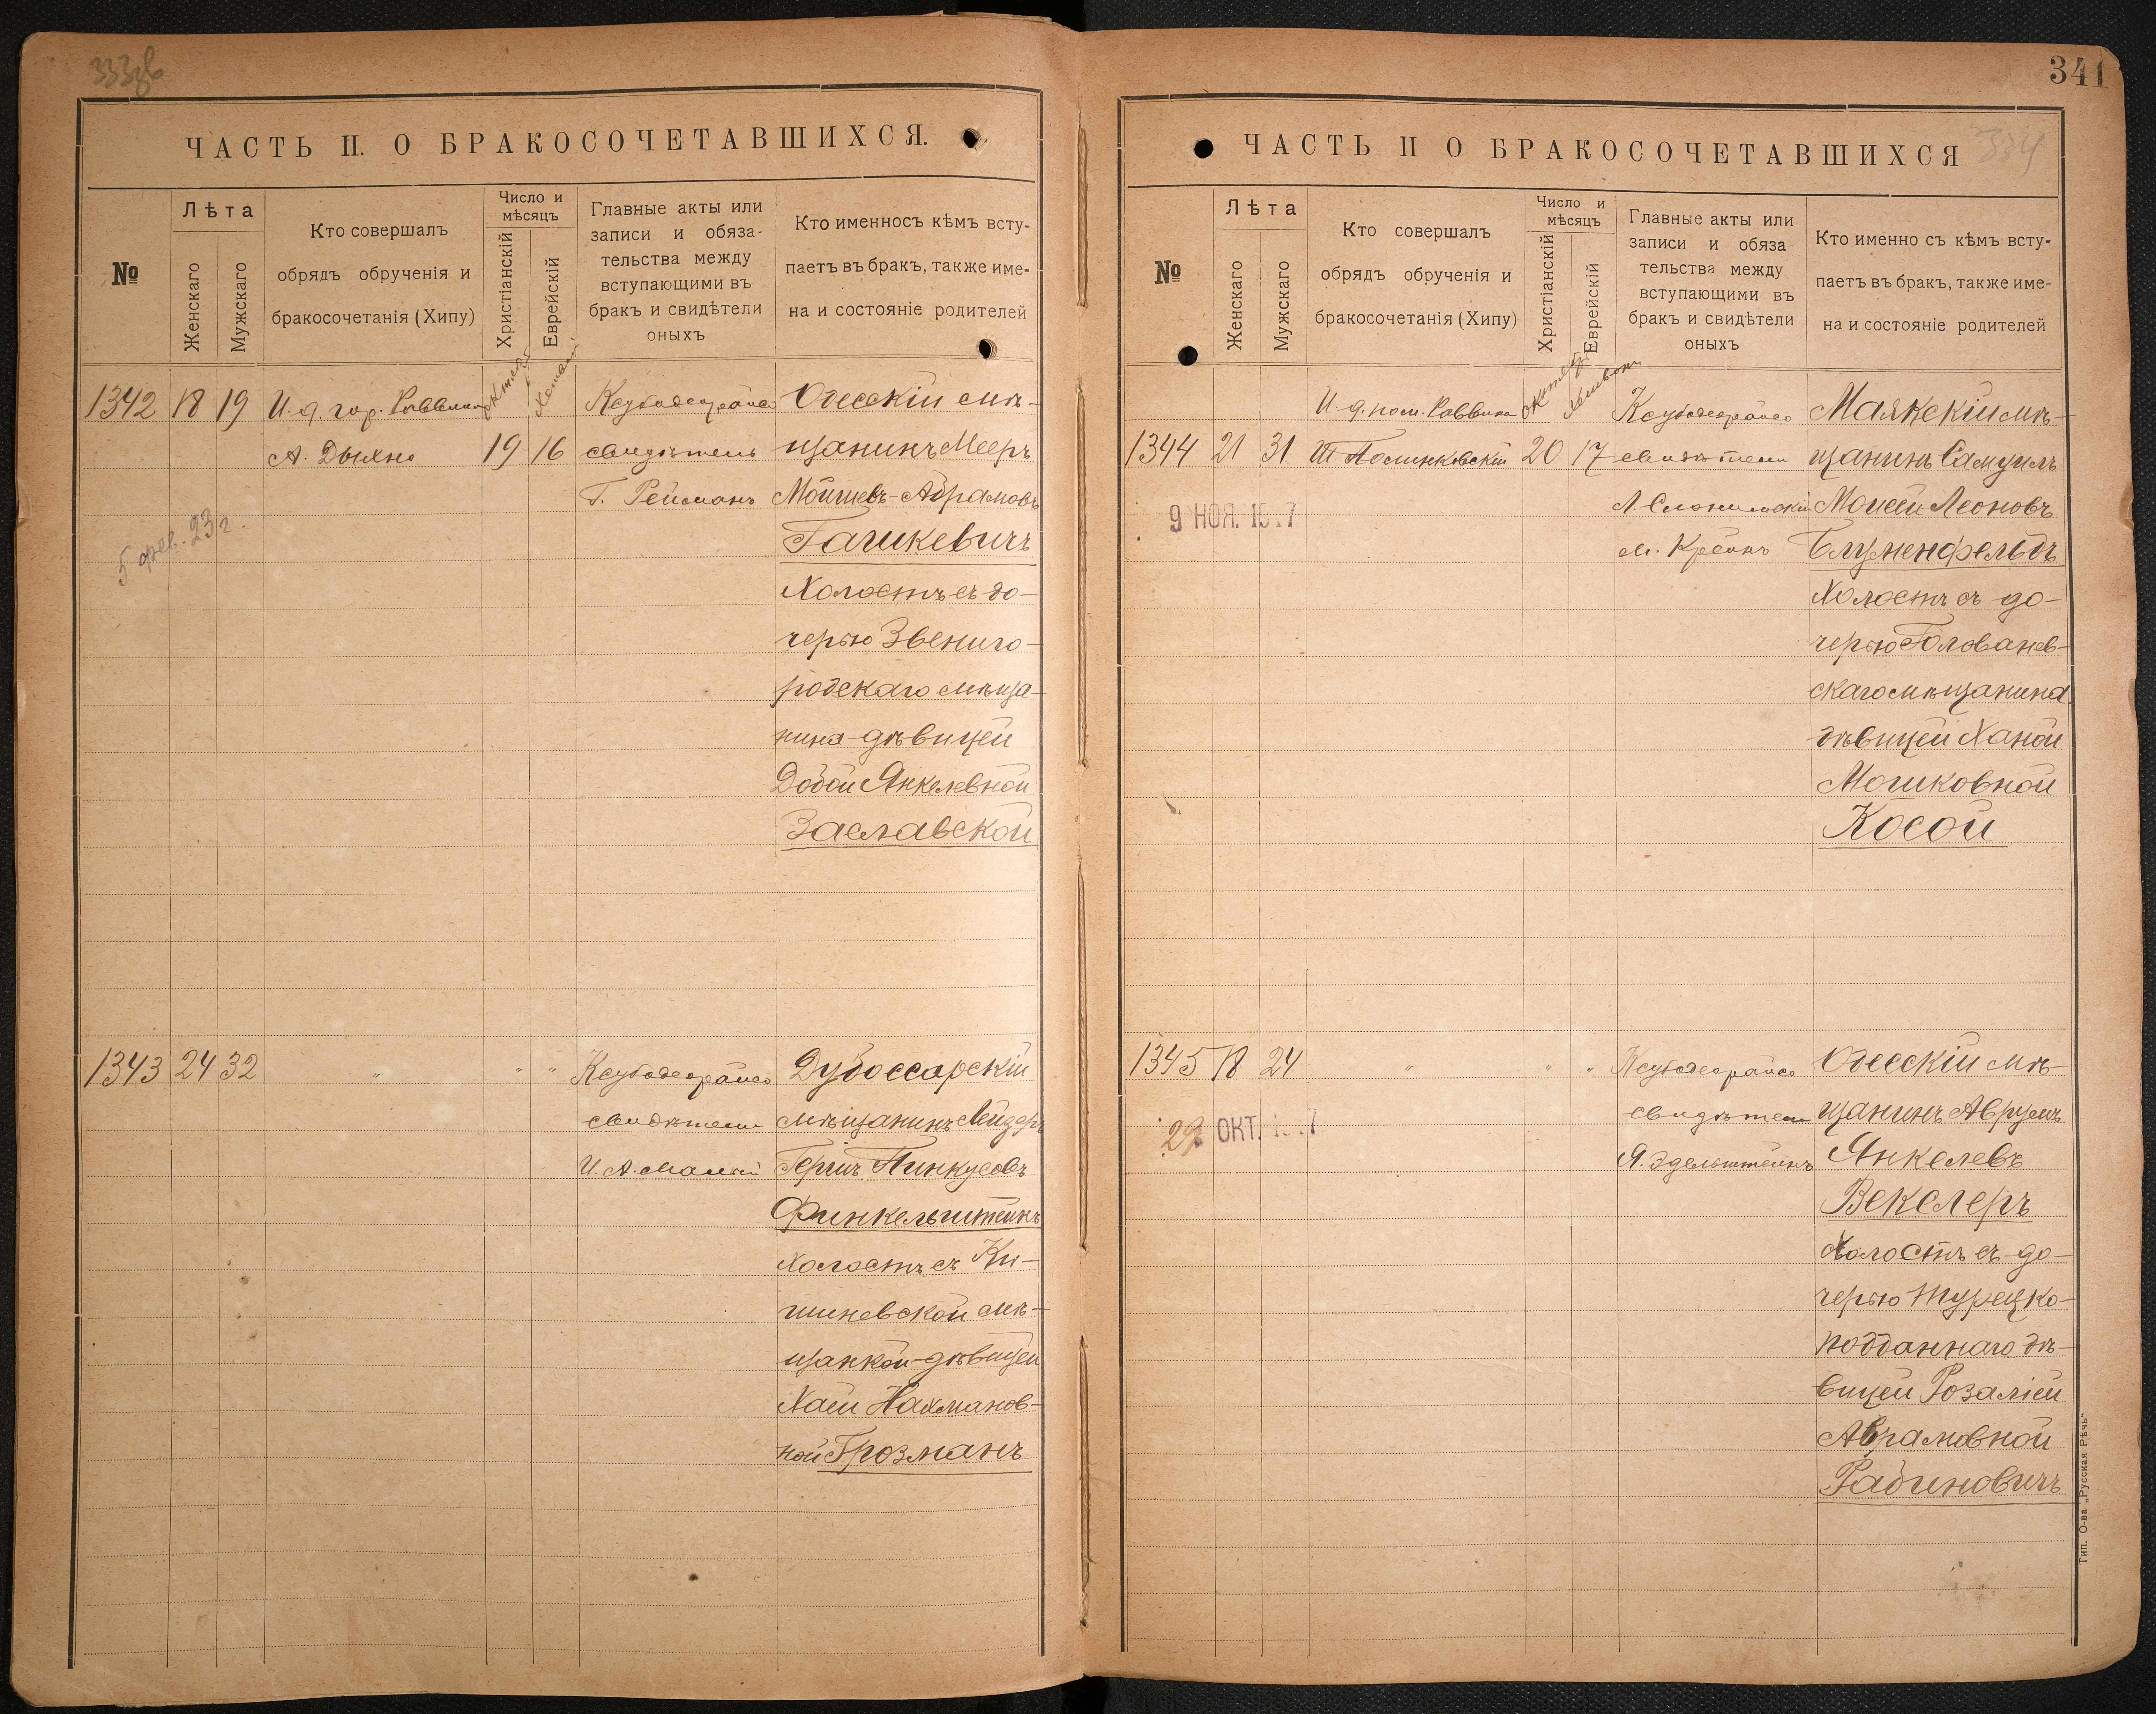 333об
ЧАСТЬ II. О БРАКОСОЧЕТАВШИХСЯ.
№
Лѣта
Женскаго
Мужскаго
Кто совершалъ
обрядъ обрученія и
бракосочетанія (Хипу)
Число и
мѣсяцъ
Христіанскій
Еврейскій
Главные акты или
записи и обяза-
тельства между
вступающими въ
бракъ и свидѣтели
оныхъ
Кто именносъ кѣмъ всту-
паетъ въ бракъ, также име-
на и состояніе родителей
1342 18 19 И. д. гор. Раввина
А. Дыхно
19 16
свидѣтель
Г. Рейсманъ
Одесскій мѣ-
щанинъ Мееръ
Мойшевъ-Абрамовъ
Гашкевичъ
Холостъ съ до-
черью Звениго-
родскаго мѣща-
нина дѣвицей
Добой Янкелевной
Заславской
5 фев. 23 г.
1343 24 32 " " "
свидѣтели
Дубоссарскій
мѣщанинъ Лейзеръ
Гершъ Пинкусовъ
Финкельштейнъ
Холостъ съ Ки-
шиневской мѣ-
щанкой-дѣвицей
Хаей Нахманов-
ной Грозманъ
341
334
ЧАСТЬ II О БРАКОСОЧЕТАВШИХСЯ
№
Лѣта
Женскаго
Мужскаго
Кто совершалъ
обрядъ обрученія и
бракосочетанія (Хипу)
Число и
мѣсяцъ
Христіанскій
Еврейскій
Главные акты или
записи и обяза
тельства между
вступающими въ
бракъ и свидѣтели
оныхъ
Кто именно съ кѣмъ всту-
паетъ въ бракъ, также име-
на и состояніе родителей
И. д. пом. Раввина
1344 21 31
20 17
свидѣтели
М. Крейнъ
9 НОЯ.
Маякскій мѣ-
щанинъ Самуилъ
Моисей Леоновъ
Блуменфельдъ
Холостъ съ до-
черью Голованев-
скаго мѣщанина
дѣвицей Ханой
Мошковной
Косой
1345 18 24 " " "
свидѣтели
Я. Эдельштейнъ
29 ОКТ.
Одесскій мѣ-
щанинъ Аврумъ
Янкелевъ
Векслеръ
Холостъ съ до-
черью Турецко-
подданнаго дѣ-
вицей Розаліей
Абрамовной
Рабиновичъ
Тип. О-ва „Русская Рѣчь"